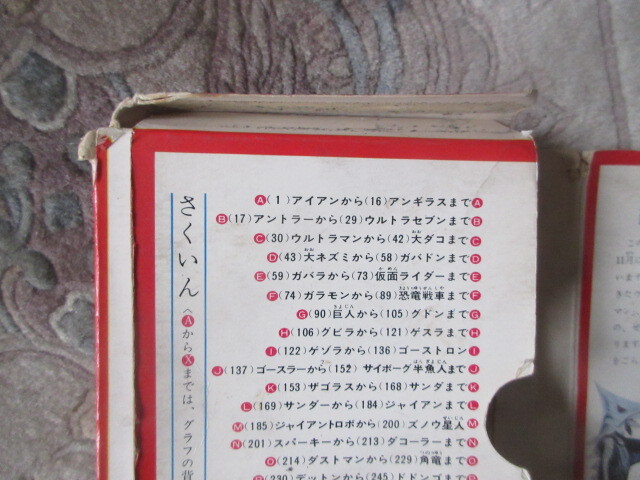 さくいん
(AからXまでは、グラフの背
A(1)アイアンから(16)アンギラスまでA
B(17)アントラーから(29)ウルトラセブンまでB
C(30)ウルトラマンから(42)大ダコまでC
D(43)大ネズミから(58)ガバドンまでD
E(59)ガバラから(73)仮面ライダーまでE
F(74)ガラモンから(89)恐竜戦車までF
G(90)巨人から(105)グドンまでG
H(106)グビラから(121)ゲスラまでH
I(122)ゲゾラから(136)ゴーストロンI
J(137)ゴースラーから(152)サイボーグ半魚人までJ
K(153)ザゴラスから(168)サンダまでK
L(169)サンダーから(184)ジャイアンまでL
M(185)ジャイアントロボから(200)ズノウ星人M
N(201)スパーキーから(213)ダコーラーまでN
O(214)ダストマンから(229)角竜までO
P(230)デットンから(245)ドドンゴまでP